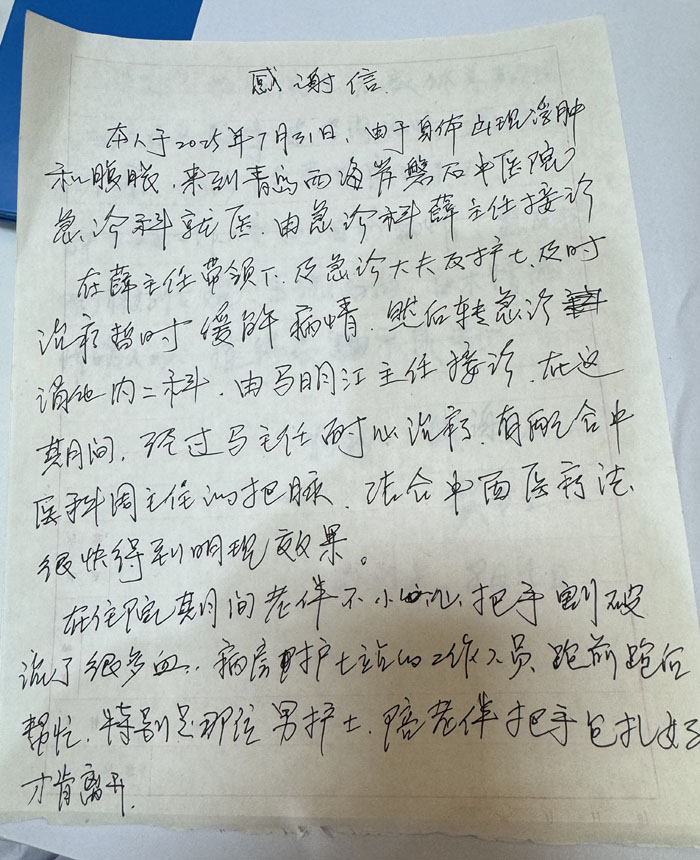 感谢信
本人于2025年7月31日、由于身体出现浮肿
和腹胀、来到青岛西海岸 中医院
急诊科就医.由急诊科薛主任接诊
在薛主任带领下、及急诊大夫及护士、及时
治疗暂时缓解病情.然后转急诊
消化内二科.由马明江主任接诊.在这
期间,经过马主任耐心治疗.有配合中
医科周主任的把脉、结合中西医疗法
很快得到明现效果。
在住院期间老伴不小心、把手割破
流了很多血..病房 护士站的工作人员、跑前跑后
帮忙.特别是那位男护士.陪老伴把手包扎好
才肯离开.